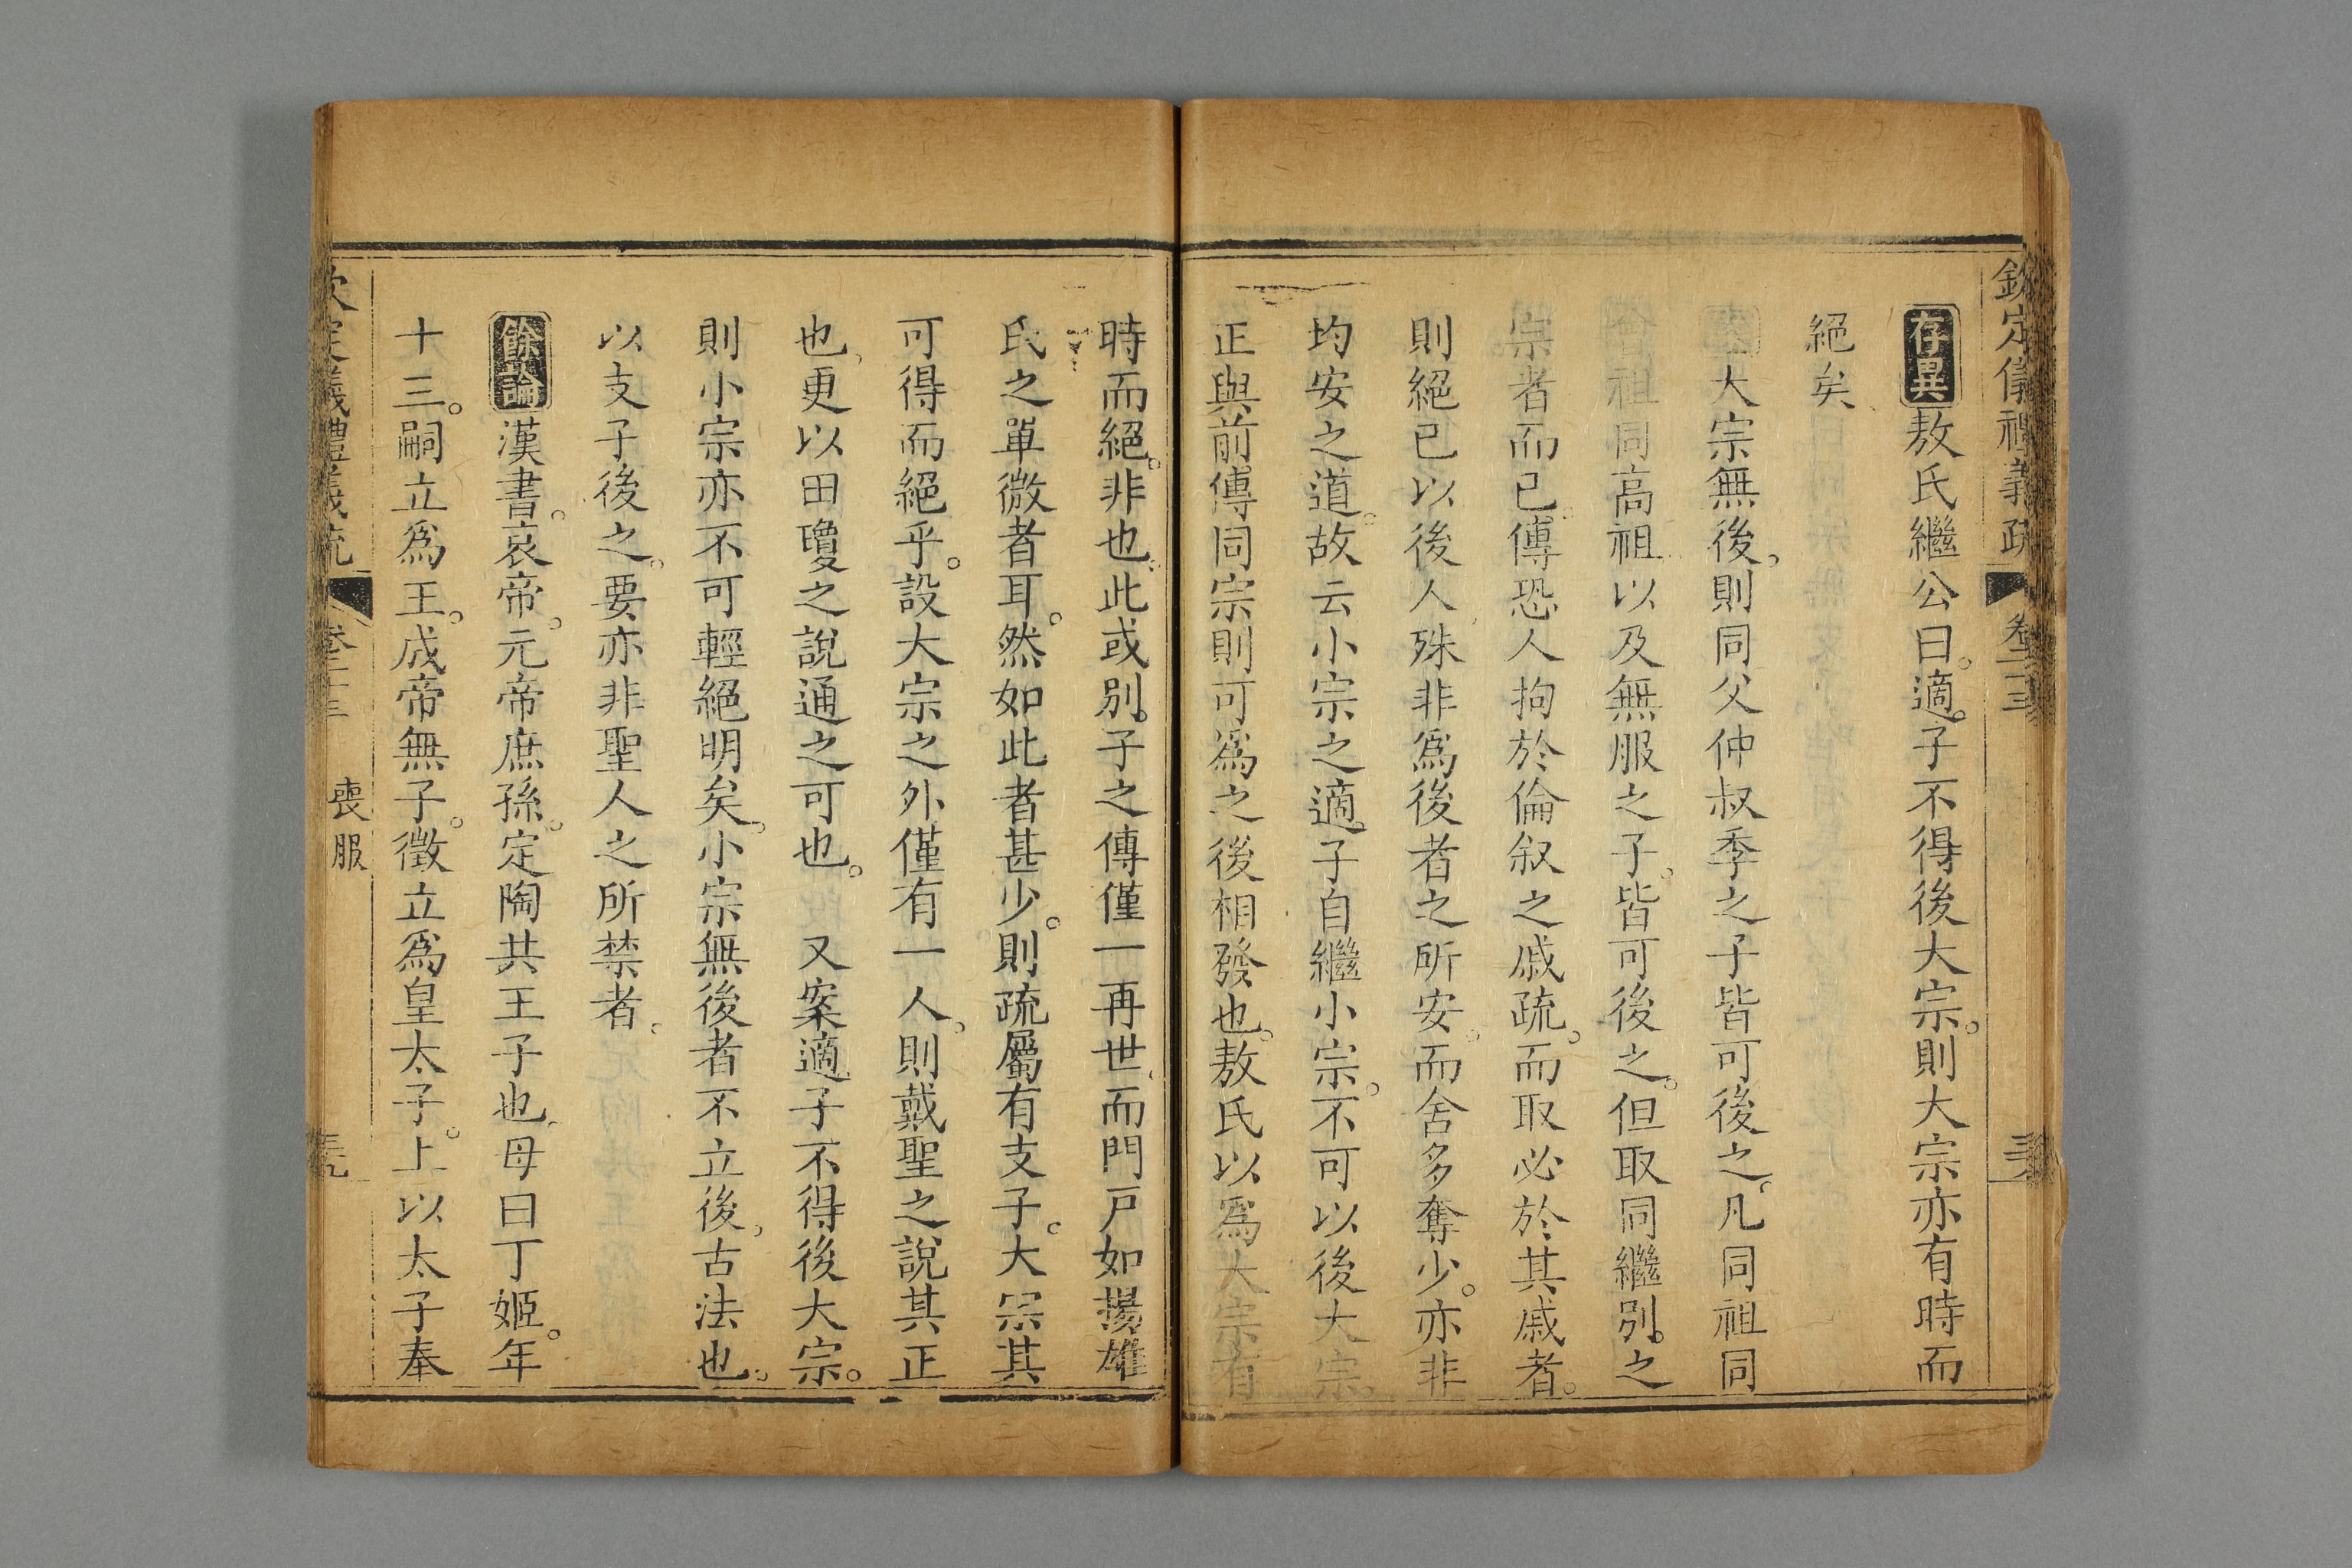 欽定儀禮義疏 卷二十三
存異敖氏繼公曰。適子不得後大宗。則大宗亦有時而
絕矣
大宗無後。則同父仲叔季之子皆可後之。凡同祖同
曾祖同高祖以及無服之子。皆可後之。但取同繼別之
宗者而已。傳恐人拘於倫叙之戚疏。而取必於其戚者。
則絕已以後人殊非爲後者之所安。而舍多奪少。亦非
均安之道。故云小宗之適子自繼小宗。不可以後大宗。
正與前傳同宗則可爲之後相發也。敖氏以爲大宗有
時而絕。非也。此或別子之傳僅一再世而門戸如揚雄
氏之單微者耳。然如此者甚少。則疏屬有支子。大宗其
可得而絕乎。設大宗之外僅有一人。則戴聖之說其正
也。更以田瓊之說通之可也。 又案適子不得後大宗。
則小宗亦不可輕絕明矣。小宗無後者不立後。古法也。
以支子後之。要亦非聖人之所禁者。
餘論漢書。哀帝。元帝庶孫。定陶共王子也。母曰丁姬。年
十三。嗣立爲王。成帝無子。徵立爲皇太子。上以太子奉
欽定儀禮義疏 卷二十三 喪服 三九